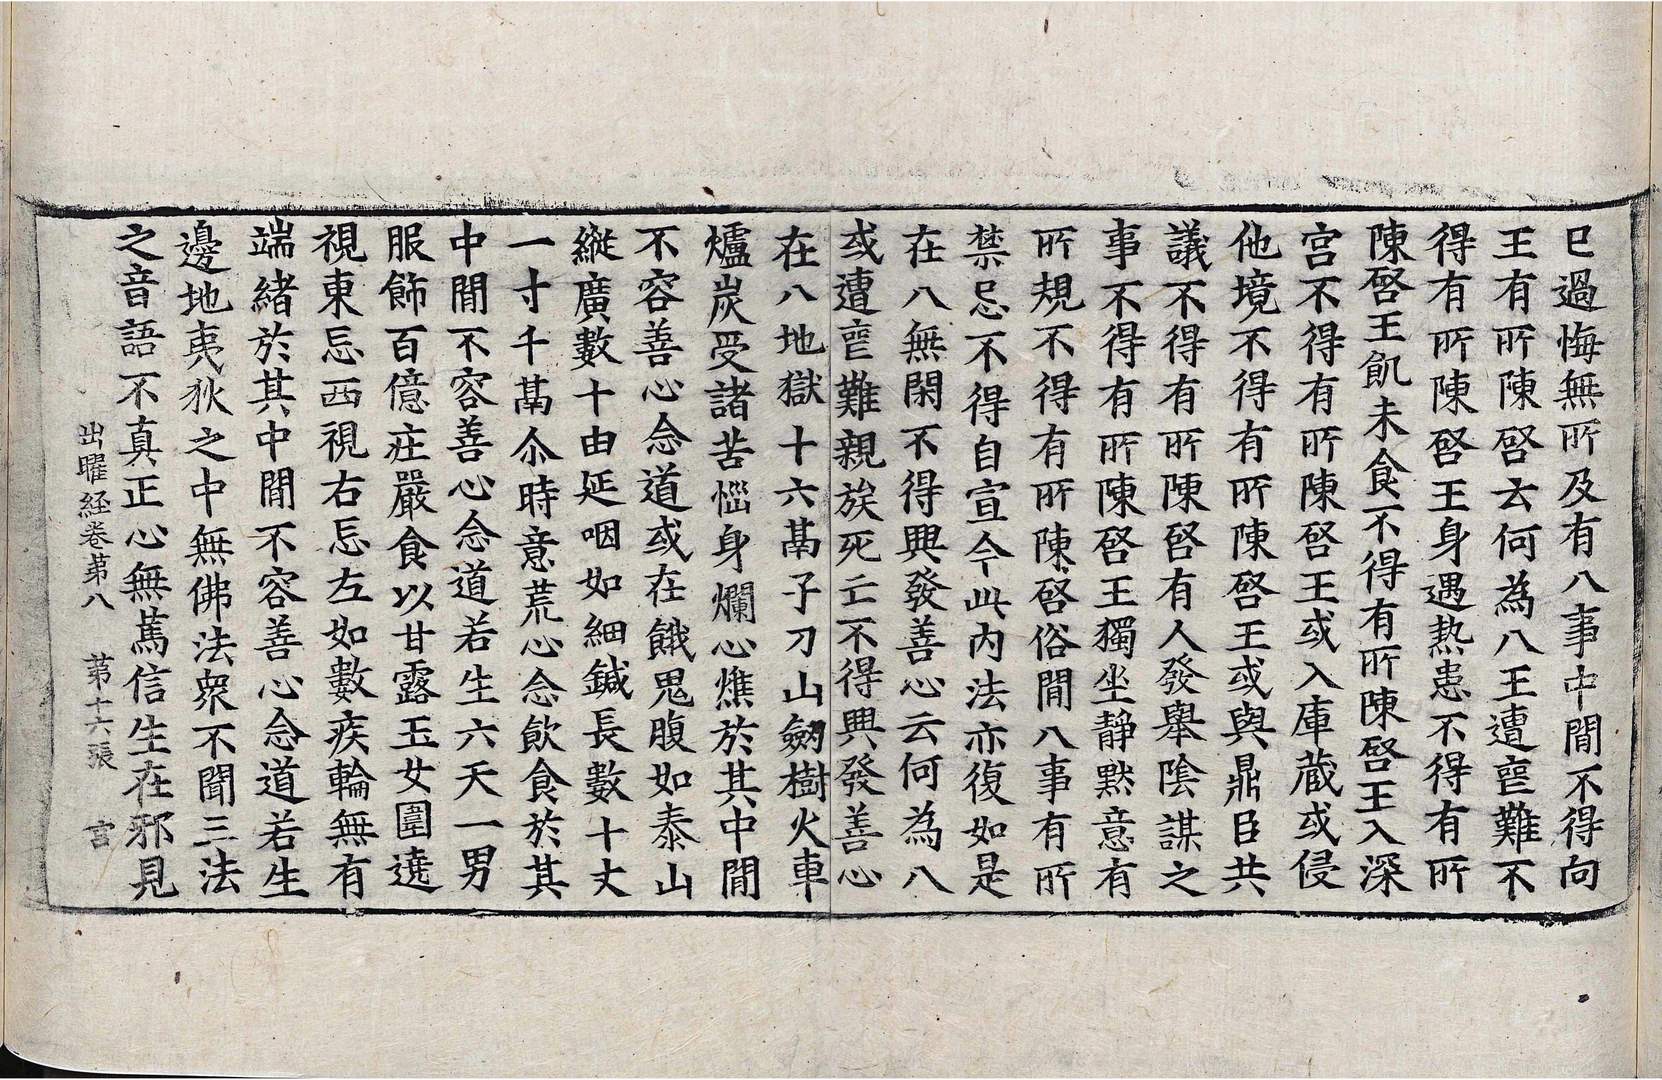 已過悔無所及有八事中間不得向
王有所陳啓云何為八王遭㐮難不
得有所陳啓王身遇熱患不得有所
陳啓王飢未食不得有所陳啓王入深
宮不得有所陳啓王或入庫蔵或侵
他境不得有所陳啓王或與鼎臣共
議不得有所陳啓有人發舉陰謀之
事不得有所陳啓王獨坐靜默意有
所規不得有所陳啓俗間八事有所
禁忌不得自宣今此內法亦復如是
在八無閑不得興發善心云何為八
或遭㐮難親族死亡不得興發善心
在八地獄十六鬲子刀山劒樹火車
爐炭受諸苦惱身爛心燋於其中間
不容善心念道或在餓鬼腹如泰山
縱廣數十由延咽如細鍼長數十丈
一寸千鬲尒時意荒心念飲食於其
中間不容善心念道若生六天一男
服飾百億庄嚴食以甘露玉女圍遶
視東忘西視右忘左如數疾輪無有
端緒於其中間不容善心念道若生
邊地夷狄之中無佛法衆不聞三法
之音語不真正心無篤信生在邪見
出曜経卷苐八 苐十六張 言